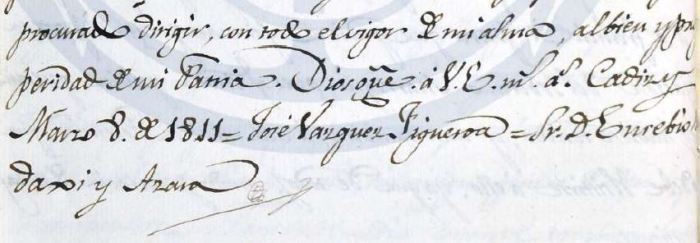 procurado dirigir, con todo el vigor de mi alma, al bien y pros
peridad de mi Patria. Dios gũe. á V. E. m.s a.s Cadiz y
Marzo 8. de 1811 = José Vazquez Figueroa = Sr. D. Eucebio
daxi y Azara